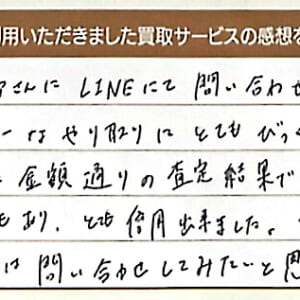 用いただきました買取サービスの感想を
さんに LINEにて 問い合わせ
ーなやり取りに とてもびっく
金額通りの査定結果で
もあり、とても信用出来ました。
は 問い合わせしてみたいと思